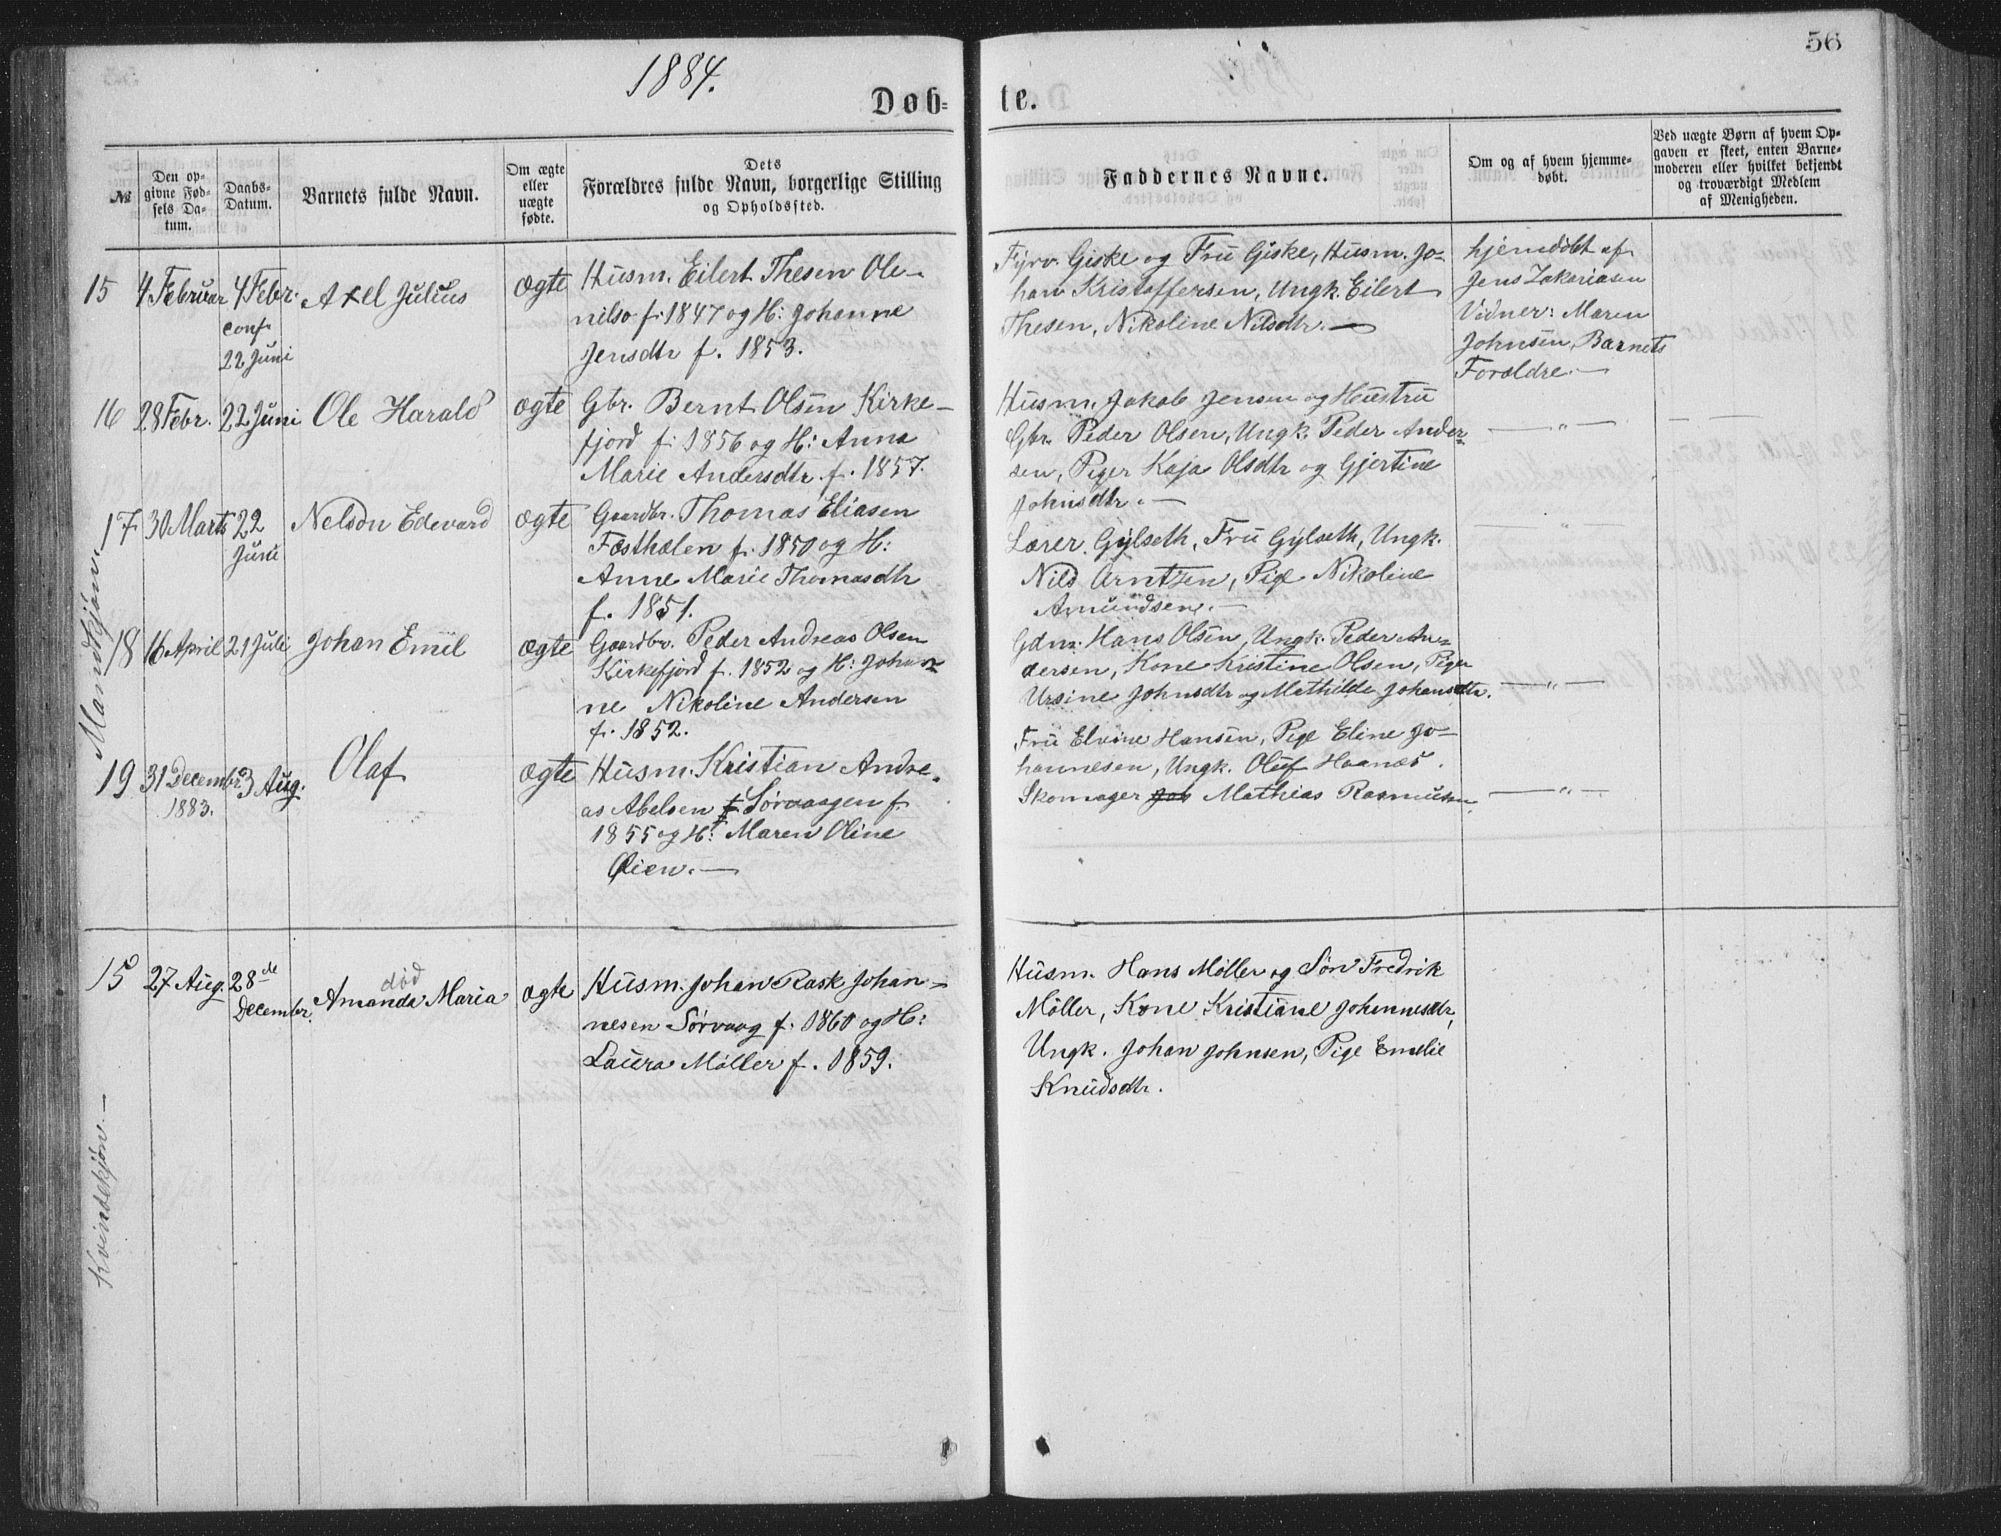 1884.
56
Døb-
te.
№
Den op-
givne Fød-
sels Da-
tum.
Daabs-
Datum.
Barnets fulde Navn.
Om ægte
eller
uægte
fødte.
Dets
Forældres fulde Navn, borgerlige Stilling
og Opholdssted.
Faddernes Navne.
Om og af hvem hjemme-
døbt.
Ved uægte Børn af hvem Op-
gaven er skeet, enten Barne-
moderen eller hvilket bekjendt
og troværdigt Medlem
af Menigheden.
Mandkjøn
15
4 Februar
4 Febr.
conf.
22 Juni
Axel Julius
Ægte
Husm. Eilert Thesen Ole-
nilsø f. 1847 og H: Johanne
Jensdtr f. 1853.
Fyrv. Giske og Fru Giske, Husm. Jo-
han Kristoffersen, Ungk. Eilert
Thesen, Nikoline Nilsdtr. —
hjemdøbt af
Jens Zakariasen
Vidner: Maren
Johnsen, Barnets
Forældre. —
16
28 Febr.
22 Juni
Ole Harald
Ægte
Gbr. Bernt Olsen Kirke-
fjord f. 1856 og H: Anna
Marie Andersdtr f. 1857.
Husm. Jakob Jensen og Hustru
Gbr. Peder Olsen, Ungk. Peder Ander-
sen, Piger Kaja Olsdtr og Gjertine
Johnsdtr. —
— „ —
17
30 Marts
22
Juni
Nelson Edevard
Ægte
Gaardbr. Thomas Eliasen
Festhælen f. 1850 og H:
Anne Marie Thomasdtr
f. 1851.
Lærer Gylseth, Fru Gylseth, Ungk.
Nils Arntzen, Pige Nikoline
Amundsen. —
— „ —
18
16 April
21 Juli
Johan Emil
Ægte
Gaardbr. Peder Andreas Olsen
Kirkefjord f. 1852 og H: Johan-
ne Nikoline Andersen
f. 1852.
Gdm. Hans Olsen, Ungk. Peder An-
dersen, Kone Kristine Olsen, Piger
Ursine Johnsdtr og Mathilde Johansdtr.
— „ —
19
31 Decembr
1883.
3 Aug.
Olaf
Ægte
Husm. Kristian Andre-
as Abelsen Sørvaagen f.
1855 og H: Maren Oline
Øien. —
Fru Elvine Hansen, Pige Eline Jo-
hannesen, Ungk. Oluf Haanes.
Skomager Joh Mathias Rasmusen.
— „ —
Kvindekjøn. —
15
27 Aug.
28de
December.
død
Amanda Maria
Ægte
Husm. Johan Rask Johan-
nesen Sørvaag f. 1860 og H:
Laura Møller f. 1859.
Husm. Hans Møller og Søn Fredrik
Møller, Kone Kristiane Johannesdtr,
Ungk. Johan Johnsen, Pige Emelie
Knudsdtr.